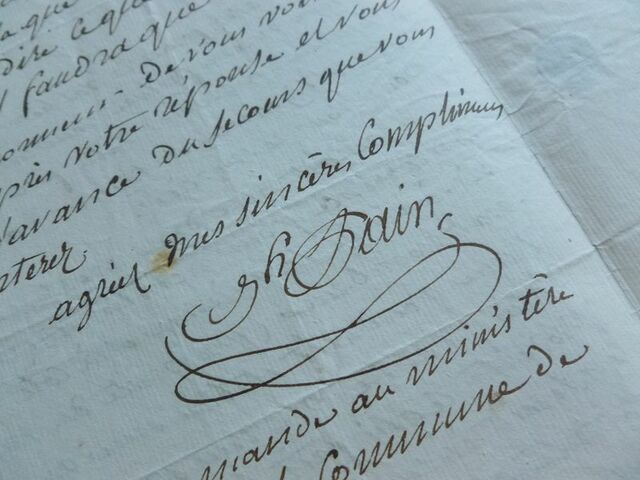 que
dire ce que
faudra que
De vous voir
après votre réponse et vous
l'avance du secours que vous
agréez mes sincères Compliments
Ph Dain
mande au ministère
Commune de